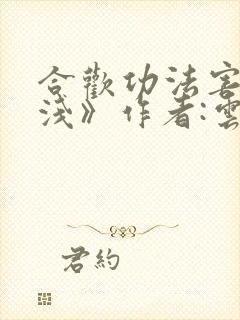 合歡功法害
淺》作者:雲
君約